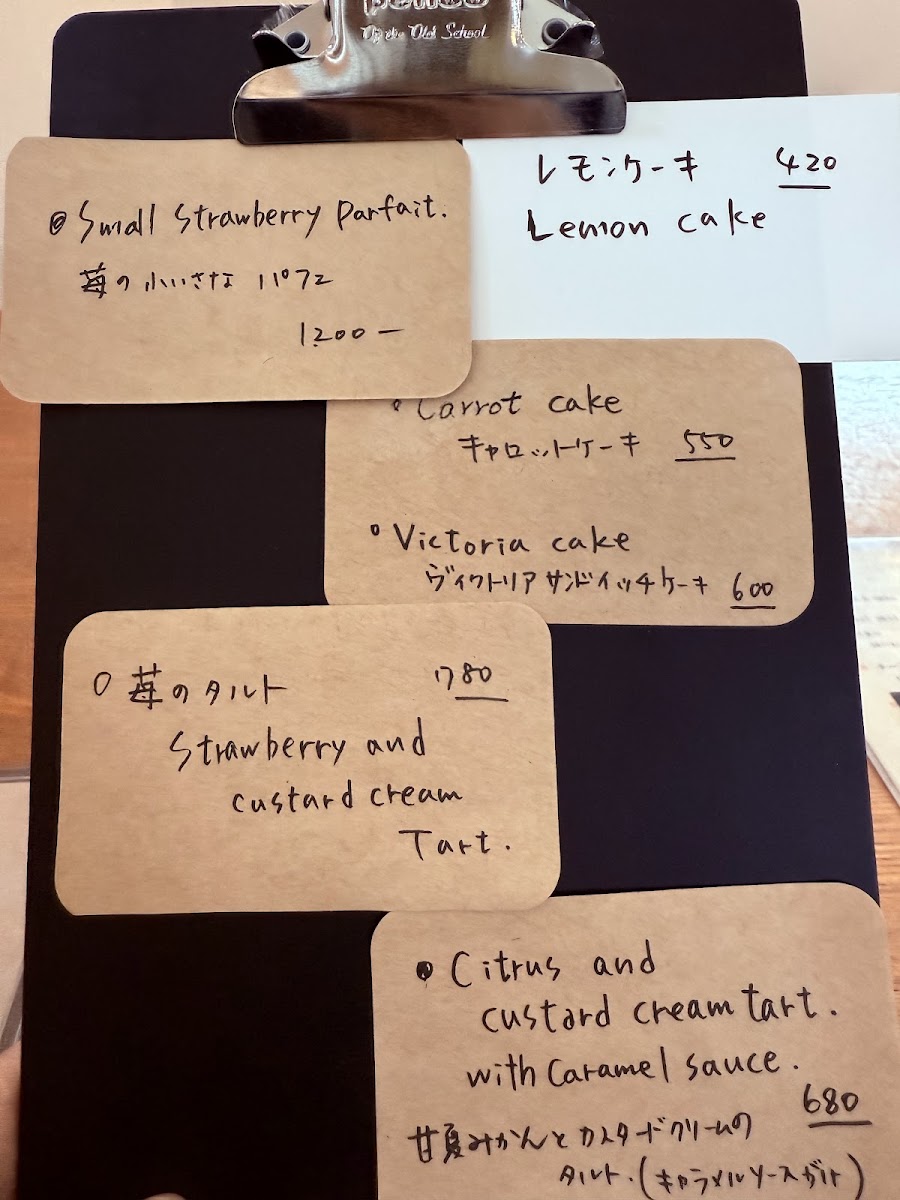 penco
Of the Old School
◎ Small Strawberry Parfait.
苺の小いさな パフェ
1200 ー
レモンケーキ 420
Lemon cake
• Carrot cake
キャロットケーキ 550
• Victoria cake
ヴィクトリアサンドイッチケーキ 600
○ 苺のタルト 780
Strawberry and
custard cream
Tart.
• Citrus and
custard cream tart.
with Caramel sauce.
680
甘夏みかんとカスタードクリームの
タルト.(キャラメルソースガケ)